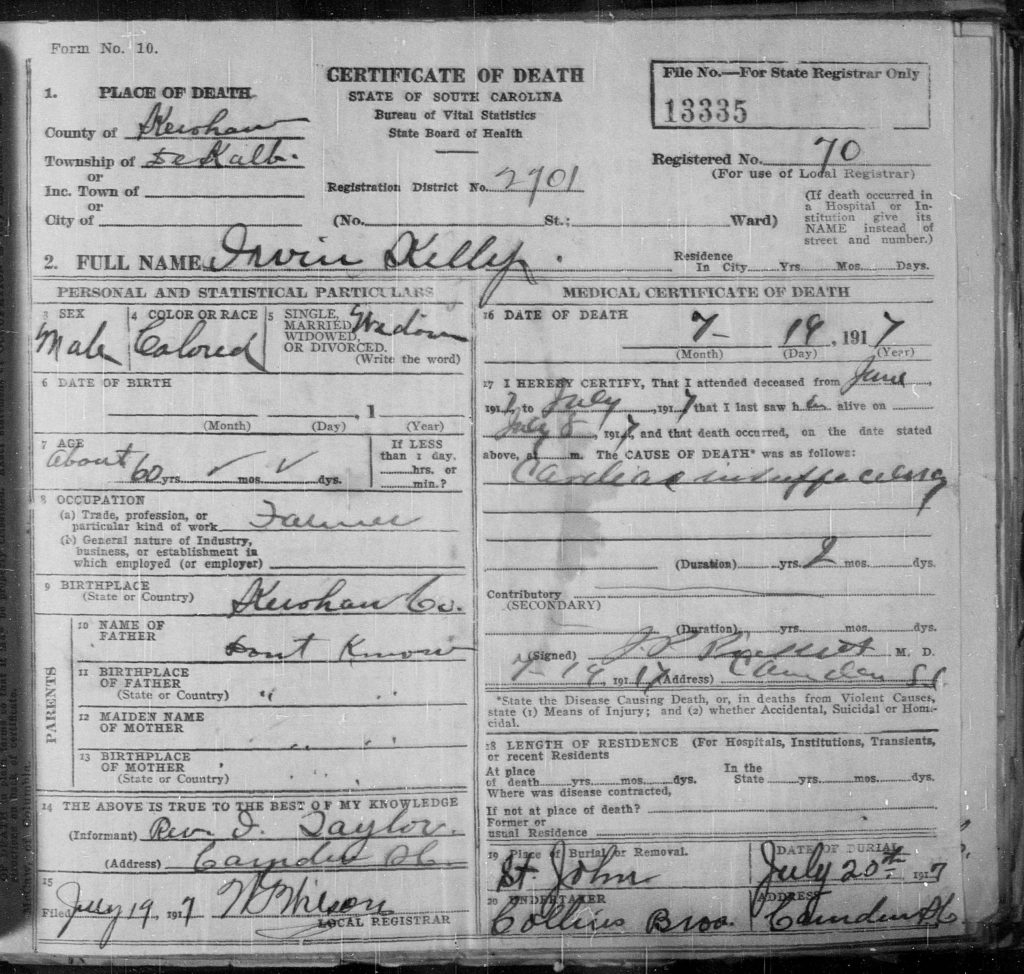 Form No. 10.
CERTIFICATE OF DEATH
STATE OF SOUTH CAROLINA
Bureau of Vital Statistics
State Board of Health
File No.—For State Registrar Only
13335
1. PLACE OF DEATH
County of Kershaw
Township of DeKalb.
or
Inc. Town of
or
City of
Registration District No. 2701
Registered No. 70
(For use of Local Registrar)
(No. St.; Ward)
(If death occurred in
a Hospital or In-
stitution give its
NAME instead of
street and number.)
2. FULL NAME Irvin Kelly.
Residence
In City Yrs. Mos. Days.
PERSONAL AND STATISTICAL PARTICULARS
3 SEX
Male
4 COLOR OR RACE
Colored
5 SINGLE,
MARRIED,
WIDOWED,
OR DIVORCED.
(Write the word)
Widow
6 DATE OF BIRTH
, 1
(Month) (Day) (Year)
7 AGE
About 60 yrs. ✓ mos. ✓ dys.
If LESS
than 1 day,
hrs. or
min.?
8 OCCUPATION
(a) Trade, profession, or
particular kind of work Farmer
(b) General nature of Industry,
business, or establishment in
which employed (or employer)
9 BIRTHPLACE
(State or Country) Kershaw Co.
PARENTS
10 NAME OF
FATHER Dont Know
11 BIRTHPLACE
OF FATHER
(State or Country) " "
12 MAIDEN NAME
OF MOTHER " "
13 BIRTHPLACE
OF MOTHER
(State or Country) " "
14 THE ABOVE IS TRUE TO THE BEST OF MY KNOWLEDGE
(Informant) Rev. I. Taylor.
(Address) Camden SC.
15
Filed July 19, 1917 Wilson
LOCAL REGISTRAR
MEDICAL CERTIFICATE OF DEATH
16 DATE OF DEATH
7- 19, 1917
(Month) (Day) (Year)
17 I HEREBY CERTIFY, That I attended deceased from June,
1917, to July, 1917 that I last saw h im alive on
July 8, 1917, and that death occurred, on the date stated
above, at m. The CAUSE OF DEATH* was as follows:
Cardiac insufficiency
(Duration) yrs. 2 mos. dys.
Contributory
(SECONDARY)
(Duration) yrs. mos. dys.
(Signed) M. D.
7-19, 1917 (Address) Camden SC
*State the Disease Causing Death, or, in deaths from Violent Causes,
state (1) Means of Injury; and (2) whether Accidental, Suicidal or Homi-
cidal.
18 LENGTH OF RESIDENCE (For Hospitals, Institutions, Transients,
or recent Residents
At place
of death yrs. mos. dys.
In the
State yrs. mos. dys.
Where was disease contracted,
If not at place of death?
Former or
usual Residence
19 Place of Burial or Removal.
St. John
DATE OF BURIAL
July 20th 1917
20 UNDERTAKER
Collins Bros.
ADDRESS
Camden SC